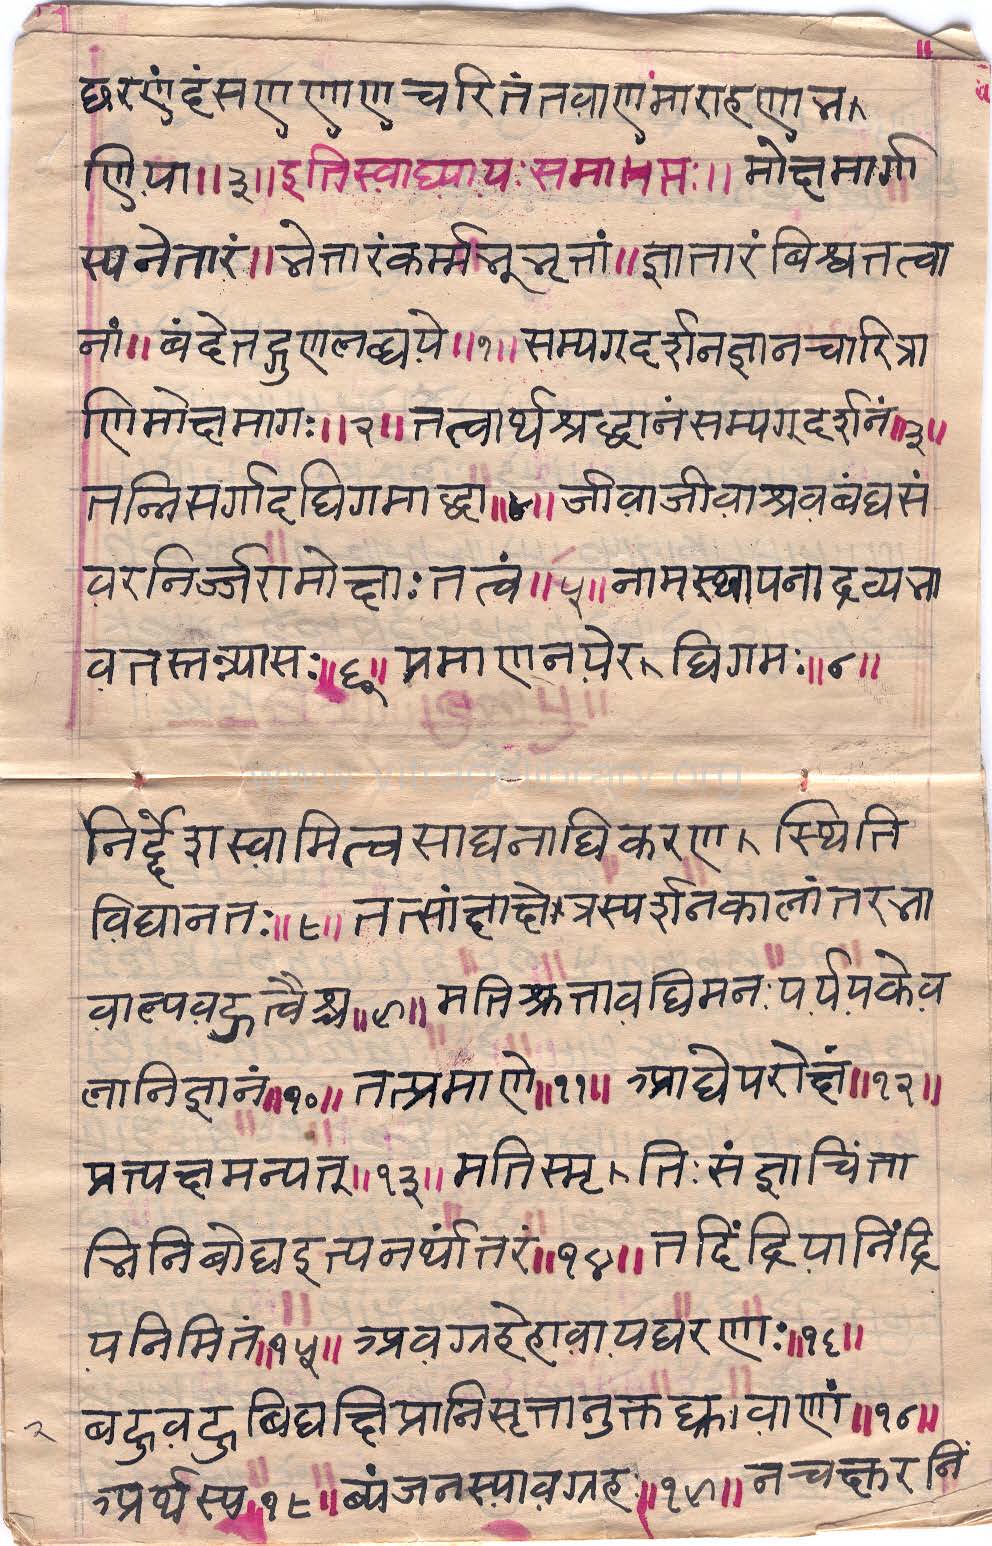 छरणं दंसण णाण चरितं तवाणंमाराहणा भ
णिया॥३॥इतिस्वाध्यायः समाप्तमः॥ मोक्षमार्गा
स्यनेतारं॥ भेत्तारंकर्म्मभूभृत्तां॥ ज्ञातारं बिश्वतत्वा
नां॥ बंदेतद्गुणलब्धये॥१॥ सम्यगदर्शनज्ञानचारित्रा
णिमोक्षमागः॥२॥ तत्वार्थश्रद्धानंसम्यगदर्शनं॥३॥
तन्निसर्गादधिगमाद्वा॥४॥ जीवाजीवाश्रवबंधसं
वरनिर्ज्जरामोक्षाः तत्वं॥५॥ नामस्थापनाद्रव्यभा
वतस्तन्न्यासः॥६॥ प्रमाणनयेर धिगमः॥८॥
www.vitragvelibrary.org
निर्द्देशस्वामित्वसाधनाधिकरण स्थिति
विधानतः॥८॥ तत्सांक्षाक्षेत्रस्पर्शनकालांतरभा
वाल्पवहुत्वैश्च॥९॥ मतिश्रुत्तावधिमनःपर्ययकेव
लानिज्ञानं॥१०॥ तत्प्रमाणे॥११॥ आधेपरोक्षं॥१२॥
प्रत्यक्षमन्यतू॥१३॥ मतिस्मृतिः संज्ञाचिंता
भिनिबोधइत्यनर्थांत्तरं॥१४॥ तदिंद्रियानिंद्रि
यनिमितं॥१५॥ अवग्रहेहावायधरणाः॥१६॥
२ बहुवहुबिधक्षिप्रानिसृत्तानुक्तध्रुवाणां॥१८॥
अर्थस्य॥१८॥ ब्यंजनस्यावग्रहः॥१९॥ नचक्षुरनिं